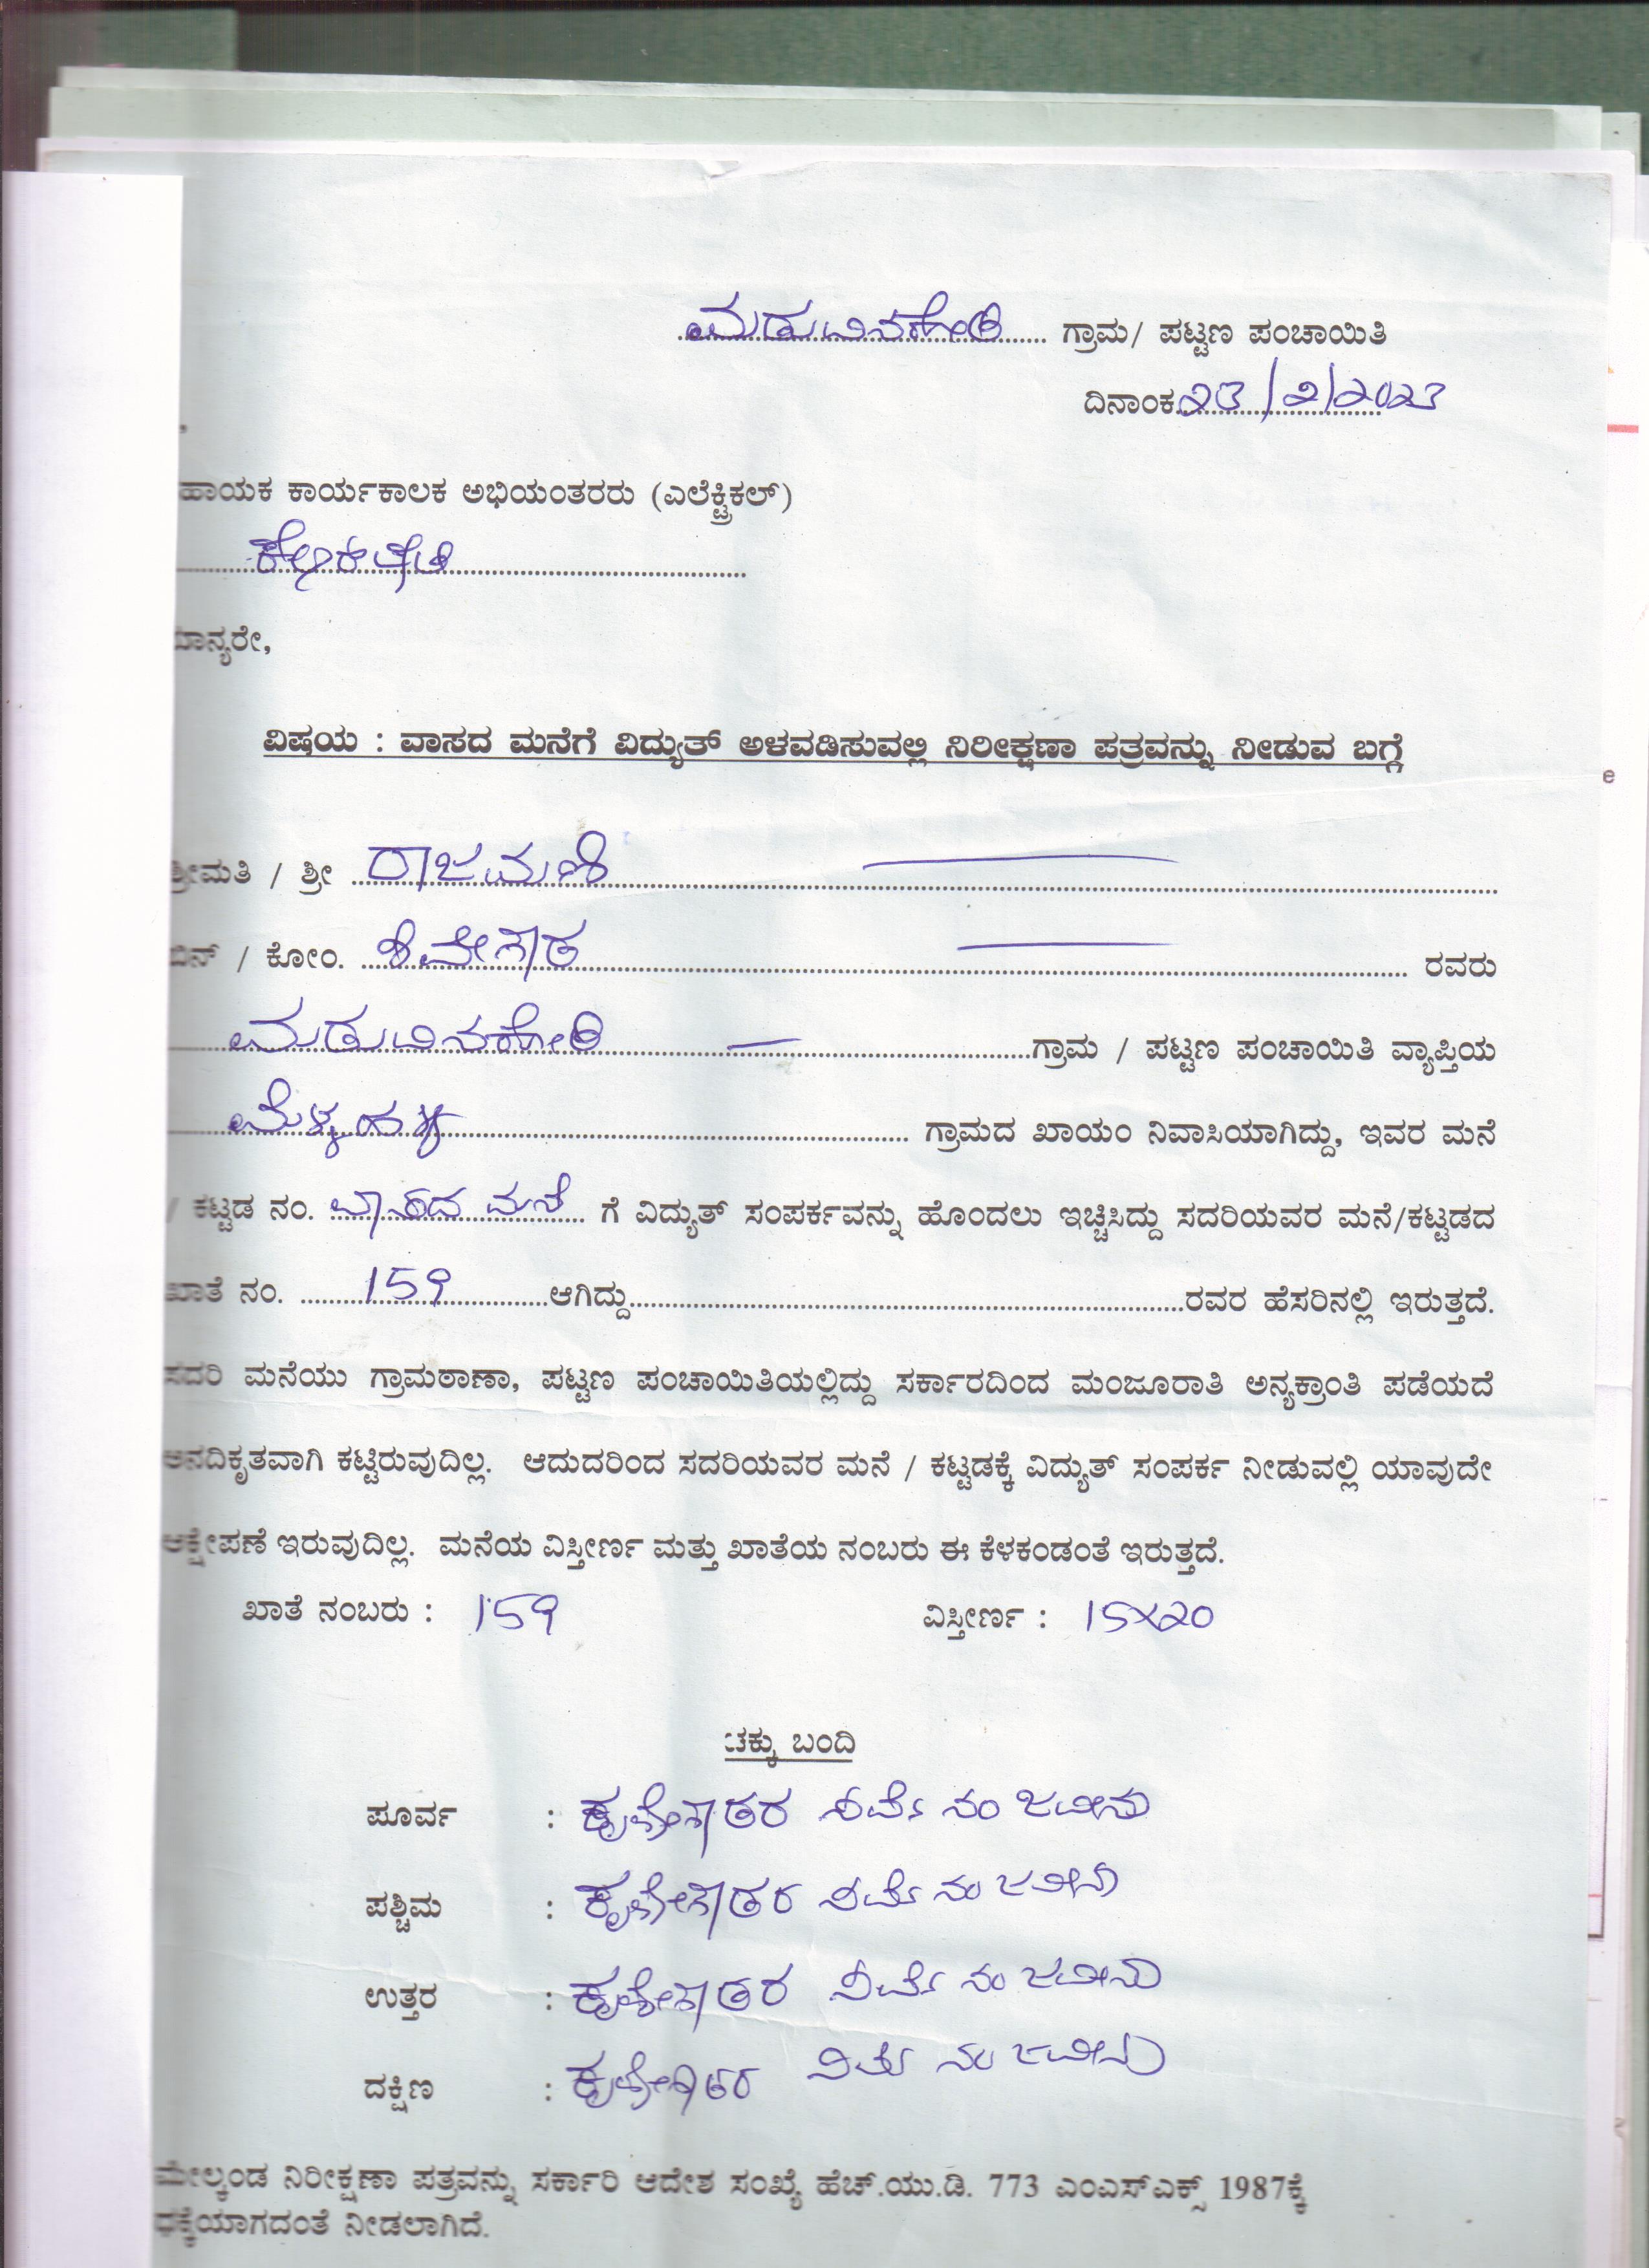 ಮಡುವಿನಕೋಡಿ ಗ್ರಾಮ/ ಪಟ್ಟಣ ಪಂಚಾಯಿತಿ
ದಿನಾಂಕ 23/2/2023
,
ಹಾಯಕ ಕಾರ್ಯಕಾಲಕ ಅಭಿಯಂತರರು (ಎಲೆಕ್ಟ್ರಿಕಲ್)
ಮಾನ್ಯರೇ,
ವಿಷಯ : ವಾಸದ ಮನೆಗೆ ವಿದ್ಯುತ್ ಅಳವಡಿಸುವಲ್ಲಿ ನಿರೀಕ್ಷಣಾ ಪತ್ರವನ್ನು ನೀಡುವ ಬಗ್ಗೆ
ಶ್ರೀಮತಿ / ಶ್ರೀ ರಾಜಮಣಿ
ಬಿನ್ / ಕೋಂ. ಶಿವೇಗೌಡ ರವರು
ಮಡುವಿನಕೋಡಿ ಗ್ರಾಮ / ಪಟ್ಟಣ ಪಂಚಾಯಿತಿ ವ್ಯಾಪ್ತಿಯ
ಗ್ರಾಮದ ಖಾಯಂ ನಿವಾಸಿಯಾಗಿದ್ದು, ಇವರ ಮನೆ
/ ಕಟ್ಟಡ ನಂ. ವಾಸದ ಮನೆ ಗೆ ವಿದ್ಯುತ್ ಸಂಪರ್ಕವನ್ನು ಹೊಂದಲು ಇಚ್ಚಿಸಿದ್ದು ಸದರಿಯವರ ಮನೆ/ಕಟ್ಟಡದ
ಖಾತೆ ನಂ. 159 ಆಗಿದ್ದು ರವರ ಹೆಸರಿನಲ್ಲಿ ಇರುತ್ತದೆ.
ಸದರಿ ಮನೆಯು ಗ್ರಾಮಠಾಣಾ, ಪಟ್ಟಣ ಪಂಚಾಯಿತಿಯಲ್ಲಿದ್ದು ಸರ್ಕಾರದಿಂದ ಮಂಜೂರಾತಿ ಅನ್ಯಕ್ರಾಂತಿ ಪಡೆಯದೆ
ಅನದಿಕೃತವಾಗಿ ಕಟ್ಟಿರುವುದಿಲ್ಲ. ಆದುದರಿಂದ ಸದರಿಯವರ ಮನೆ / ಕಟ್ಟಡಕ್ಕೆ ವಿದ್ಯುತ್ ಸಂಪರ್ಕ ನೀಡುವಲ್ಲಿ ಯಾವುದೇ
ಆಕ್ಷೇಪಣೆ ಇರುವುದಿಲ್ಲ. ಮನೆಯ ವಿಸ್ತೀರ್ಣ ಮತ್ತು ಖಾತೆಯ ನಂಬರು ಈ ಕೆಳಕಂಡಂತೆ ಇರುತ್ತದೆ.
ಖಾತೆ ನಂಬರು : 159 ವಿಸ್ತೀರ್ಣ : 15X20
ಚಕ್ಕು ಬಂದಿ
ಪೂರ್ವ : ನಂ ಜಮೀನು
ಪಶ್ಚಿಮ : ನಂ ಜಮೀನು
ಉತ್ತರ : ನಂ ಜಮೀನು
ದಕ್ಷಿಣ : ನಂ ಜಮೀನು
ಮೇಲ್ಕಂಡ ನಿರೀಕ್ಷಣಾ ಪತ್ರವನ್ನು ಸರ್ಕಾರಿ ಆದೇಶ ಸಂಖ್ಯೆ ಹೆಚ್.ಯು.ಡಿ. 773 ಎಂಎಸ್ಎಕ್ಸ್ 1987ಕ್ಕೆ
ಧಕ್ಕೆಯಾಗದಂತೆ ನೀಡಲಾಗಿದೆ.